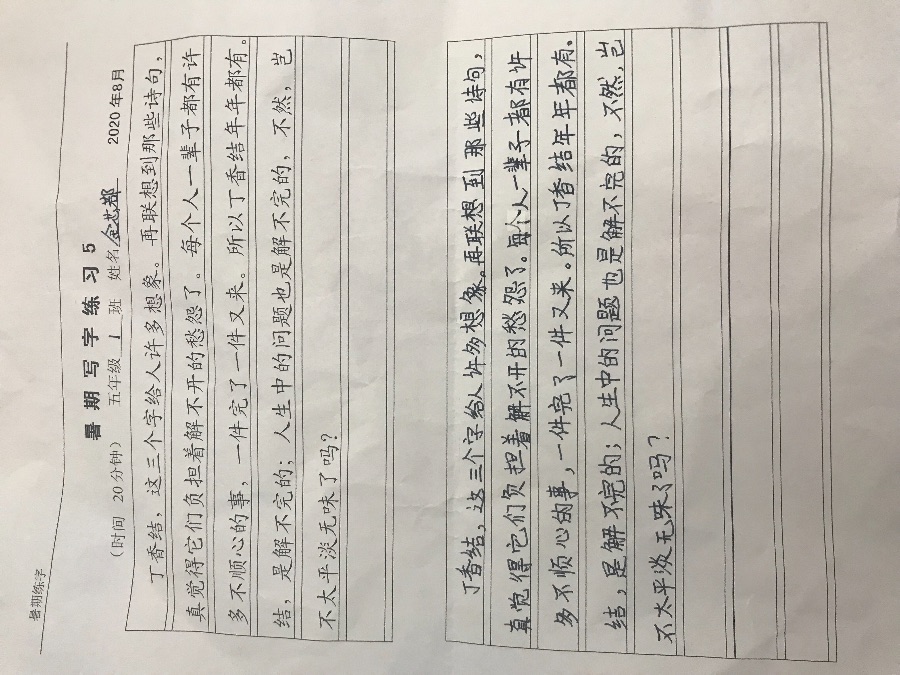 暑期练字
暑期写字练习5
(时间 20分钟) 五年级 1 班 姓名 2020年8月
丁香结，这三个字给人许多想象。再联想到那些诗句，
真觉得它们负担着解不开的愁怨了。每个人一辈子都有许
多不顺心的事，一件完了一件又来。所以丁香结年年都有。
结，是解不完的；人生中的问题也是解不完的，不然，岂
不太平淡无味了吗？
丁香结，这三个字给人许多想象。再联想到那些诗句，
真觉得它们负担着解不开的愁怨了。每个人一辈子都有许
多不顺心的事，一件完了一件又来。所以丁香结年年都有。
结，是解不完的；人生中的问题也是解不完的，不然，岂
不太平淡无味了吗？